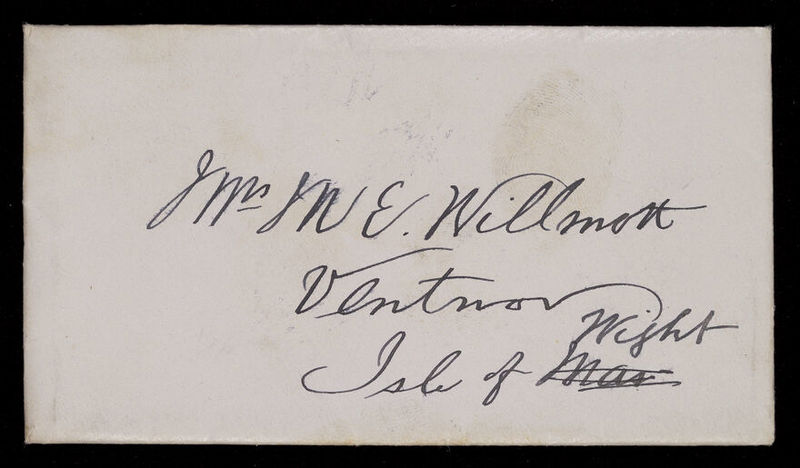 Mrs M E. Willmott
Ventnor
Wight
Isle of Man